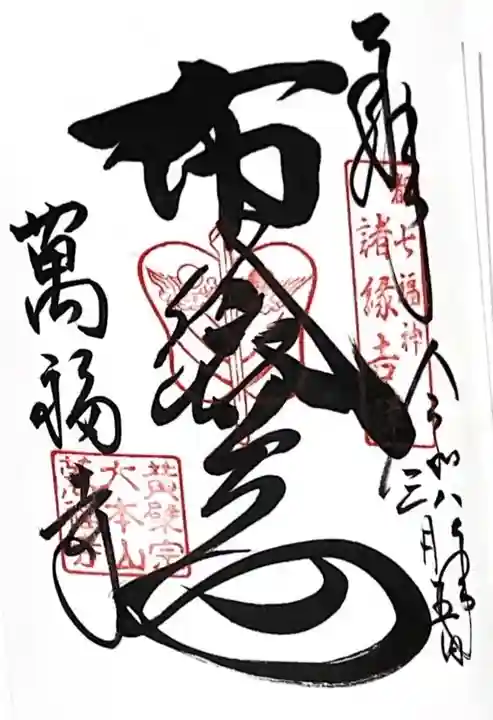 奉拝
都七福神
諸縁吉
令和八年
三月五日
布袋尊
萬福寺
黄檗宗
大本山
萬福寺